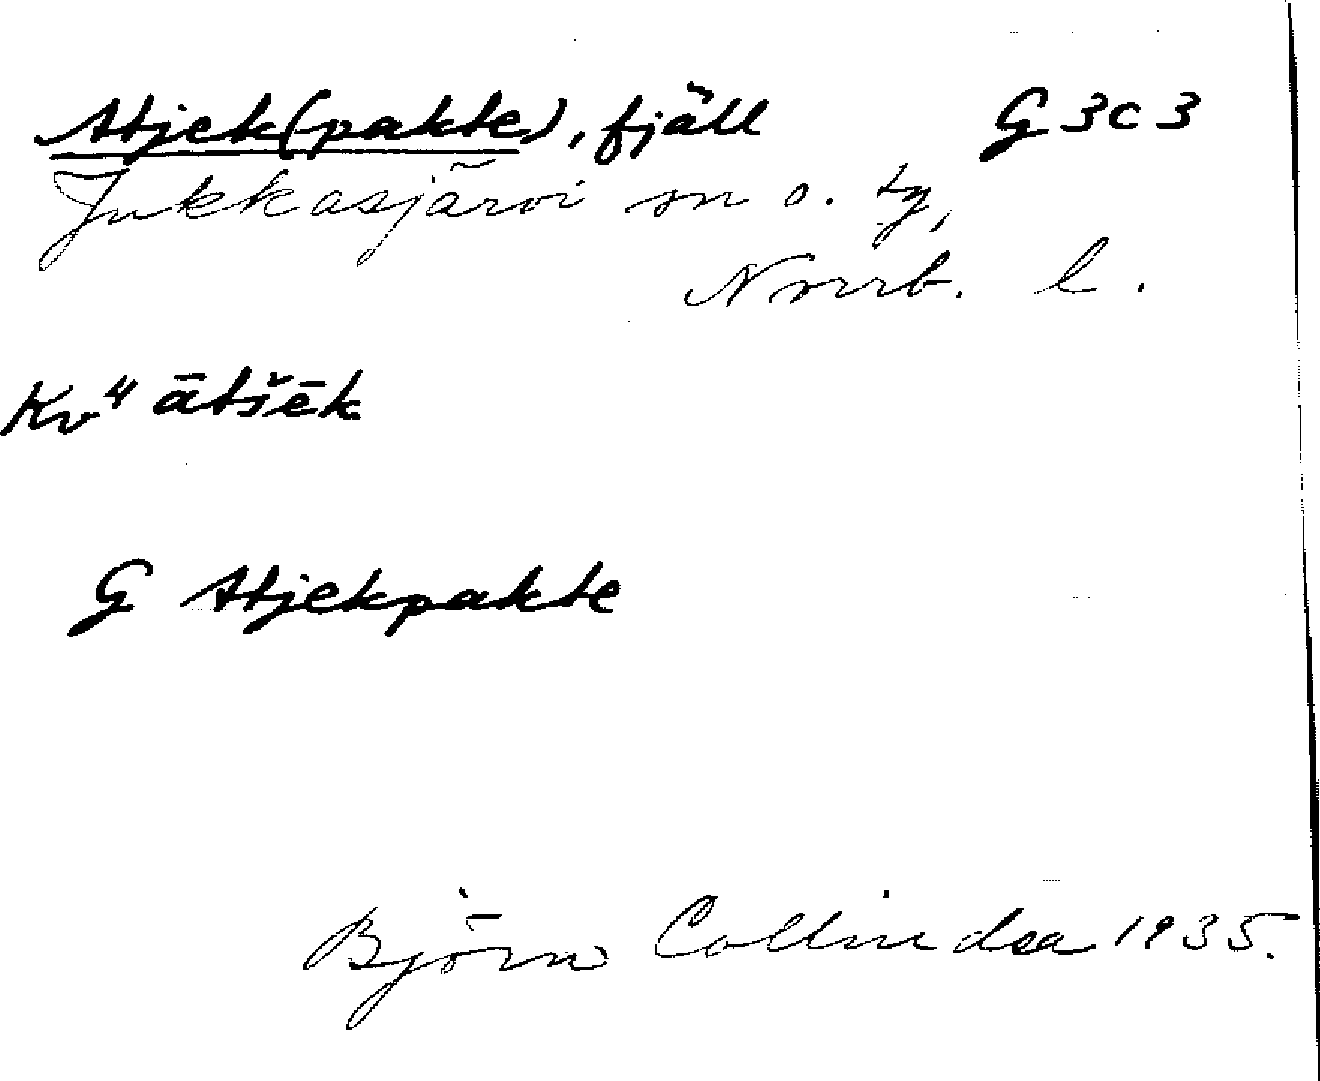 Atjek(pakte), fjäll G 3c 3
Jukkasjärvi sn o. tg,
Norrb. l.
Kv" ātšēk
G Atjekpakte
Björn Collinder 1935.